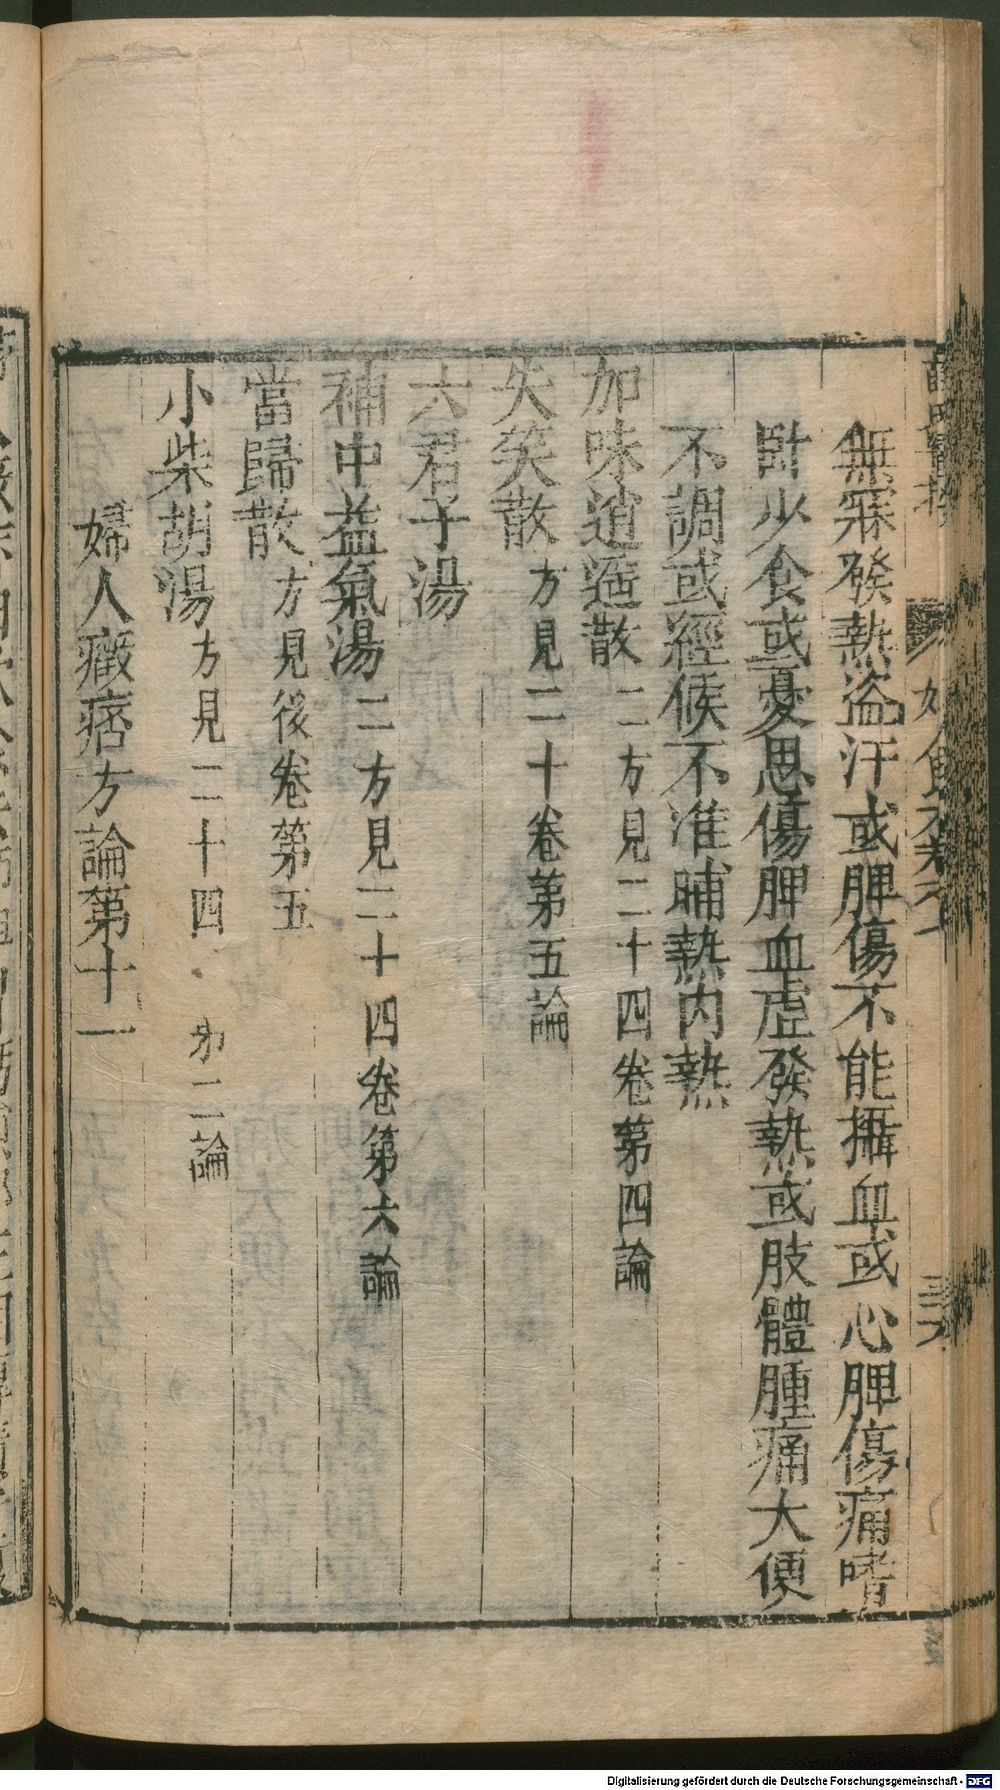 無寐發熱盗汗或脾傷不能攝血或心脾傷痛嗜
卧少食或憂思傷脾血虚發熱或肢體腫痛大便
不調或經候不准晡熱内熱
加味逍遥散二方見二十四卷第四論
失笑散方見二十卷第五論
六君子湯
補中益氣湯二方見二十四卷第六論
當歸散方見後卷第五
小柴胡湯方見二十四 第二論
婦人癥痞方論第十一
Digitalisierung gefördert durch die Deutsche Forschungsgemeinschaft - DFG